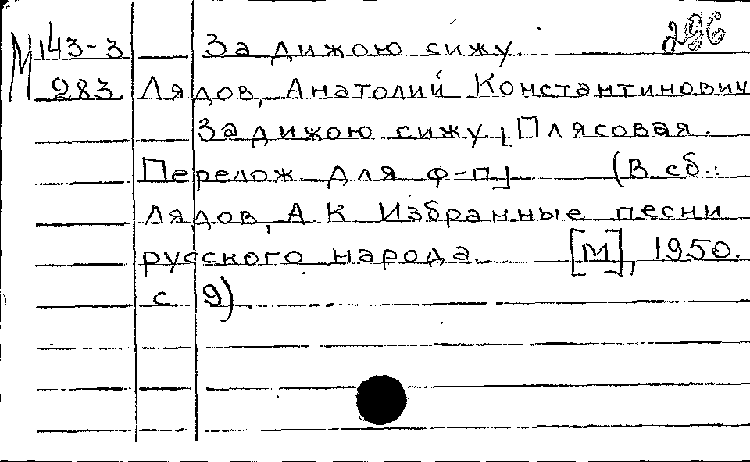 М 143-3 За дижою сижу. 296
283 Лядов, Анатолий Константинович
За дижою сижу. [Плясовая.
Перелож для ф-п] (В сб.:
Лядов, А К Избранные песни
русского народа [М], 1950.
с 9)